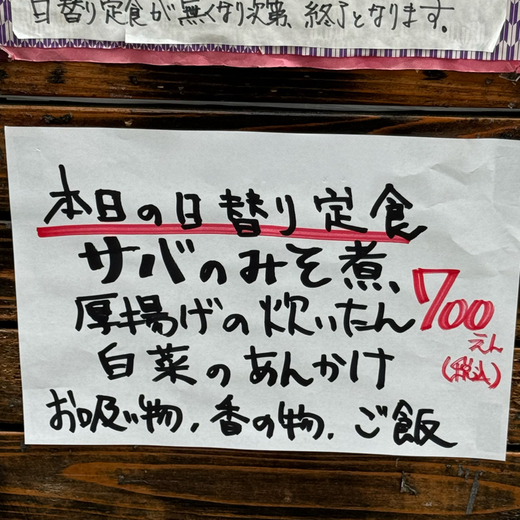 日替り定食が無くなり次第、終了となります。
本日の日替り定食
サバのみそ煮、
厚揚げの炊いたん
白菜のあんかけ
お吸い物、香の物、ご飯
700
えん
(税込)